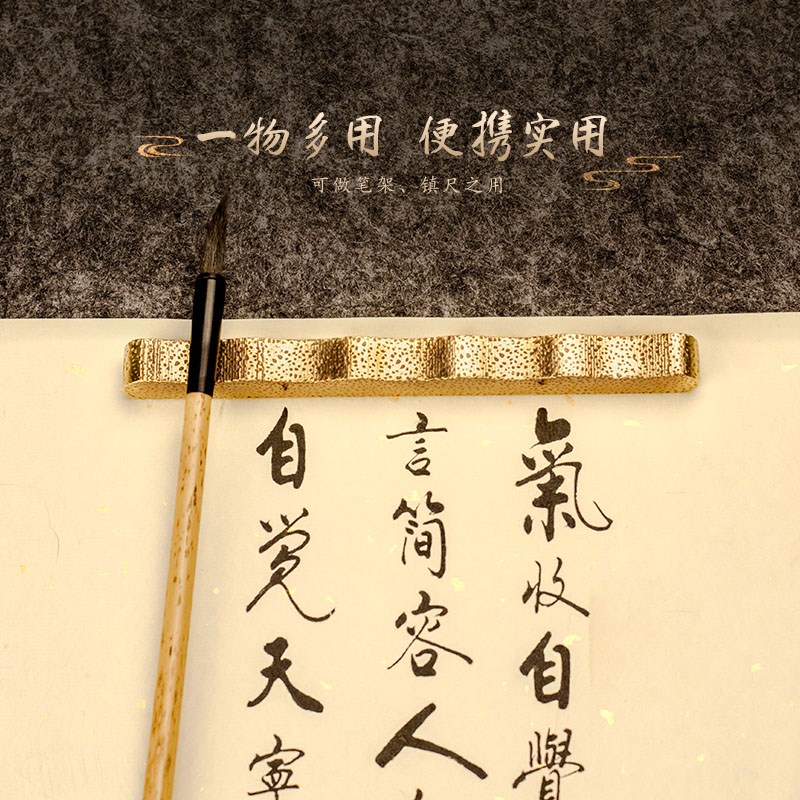 一物多用 便携实用
可做笔架、镇尺之用
氣收自覺
言簡容人
自覺天寧